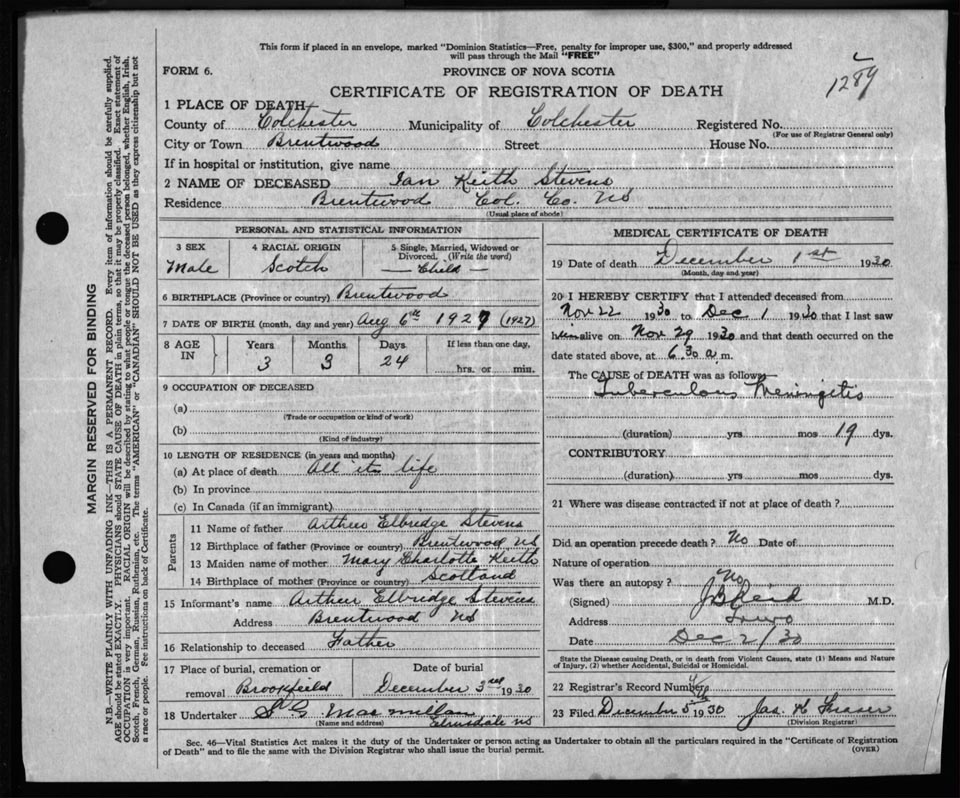 This form if placed in an envelope, marked "Dominion Statistics—Free, penalty for improper use, $300," and properly addressed
will pass through the Mail "FREE"
FORM 6.
PROVINCE OF NOVA SCOTIA
1289
CERTIFICATE OF REGISTRATION OF DEATH
1 PLACE OF DEATH
County of Colchester Municipality of Colchester Registered No.
(For use of Registrar General only)
City or Town Brentwood Street House No.
If in hospital or institution, give name
2 NAME OF DECEASED Ian Keith Stevens
Residence Brentwood Col. Co. NS
(Usual place of abode)
PERSONAL AND STATISTICAL INFORMATION
3 SEX 4 RACIAL ORIGIN 5 Single, Married, Widowed or
Divorced. (Write the word)
Male Scotch — Child —
6 BIRTHPLACE (Province or country) Brentwood
7 DATE OF BIRTH (month, day and year) Aug 6th 1927 (1927)
8 AGE IN Years Months Days If less than one day,
3 3 24 hrs. or min.
9 OCCUPATION OF DECEASED
(a)
(Trade or occupation or kind of work)
(b)
(Kind of industry)
10 LENGTH OF RESIDENCE (in years and months)
(a) At place of death All its life
(b) In province
(c) In Canada (if an immigrant)
Parents
11 Name of father Arthur Elbridge Stevens
12 Birthplace of father (Province or country) Brentwood NS
13 Maiden name of mother Mary Charlotte Keith
14 Birthplace of mother (Province or country) Scotland
15 Informant's name Arthur Elbridge Stevens
Address Brentwood NS
16 Relationship to deceased Father
17 Place of burial, cremation or Date of burial
removal Brookfeild December 3rd 1930
18 Undertaker MacMillan
(Name and address) Elmsdale NS
MEDICAL CERTIFICATE OF DEATH
19 Date of death December 1st 1930
(Month, day and year)
20 I HEREBY CERTIFY that I attended deceased from
Nov 22 1930 to Dec 1 1930 that I last saw
him alive on Nov 29 1930 and that death occurred on the
date stated above, at 6.30 a.m.
The CAUSE of DEATH was as follows
Tuberculous Meningitis
(duration) yrs mos 19 dys.
CONTRIBUTORY
(duration) yrs mos dys.
21 Where was disease contracted if not at place of death?
Did an operation precede death? No Date of
Nature of operation
Was there an autopsy? No
(Signed) J B Reid M.D.
Address Truro
Date Dec 2/30
State the Disease causing Death, or in death from Violent Causes, state (1) Means and Nature
of Injury, (2) whether Accidental, Suicidal or Homicidal.
22 Registrar's Record Number
23 Filed December 5th 1930 Jas. H Fraser
(Division Registrar)
Sec. 46—Vital Statistics Act makes it the duty of the Undertaker or person acting as Undertaker to obtain all the particulars required in the "Certificate of Registration
of Death" and to file the same with the Division Registrar who shall issue the burial permit. (OVER)
MARGIN RESERVED FOR BINDING
N.B.—WRITE PLAINLY WITH UNFADING INK—THIS IS A PERMANENT RECORD. Every item of information should be carefully supplied.
AGE should be stated EXACTLY. PHYSICIANS should STATE CAUSE OF DEATH in plain terms, so that it may be properly classified. Exact statement of
OCCUPATION is very important. RACIAL ORIGIN will be described by stating to what people or tongue the deceased person belonged, whether English, Irish,
Scotch, French, German, Russian, Ruthenian, etc. The terms "AMERICAN" or "CANADIAN" SHOULD NOT BE USED as they express citizenship but not
a race or people. See instructions on back of Certificate.